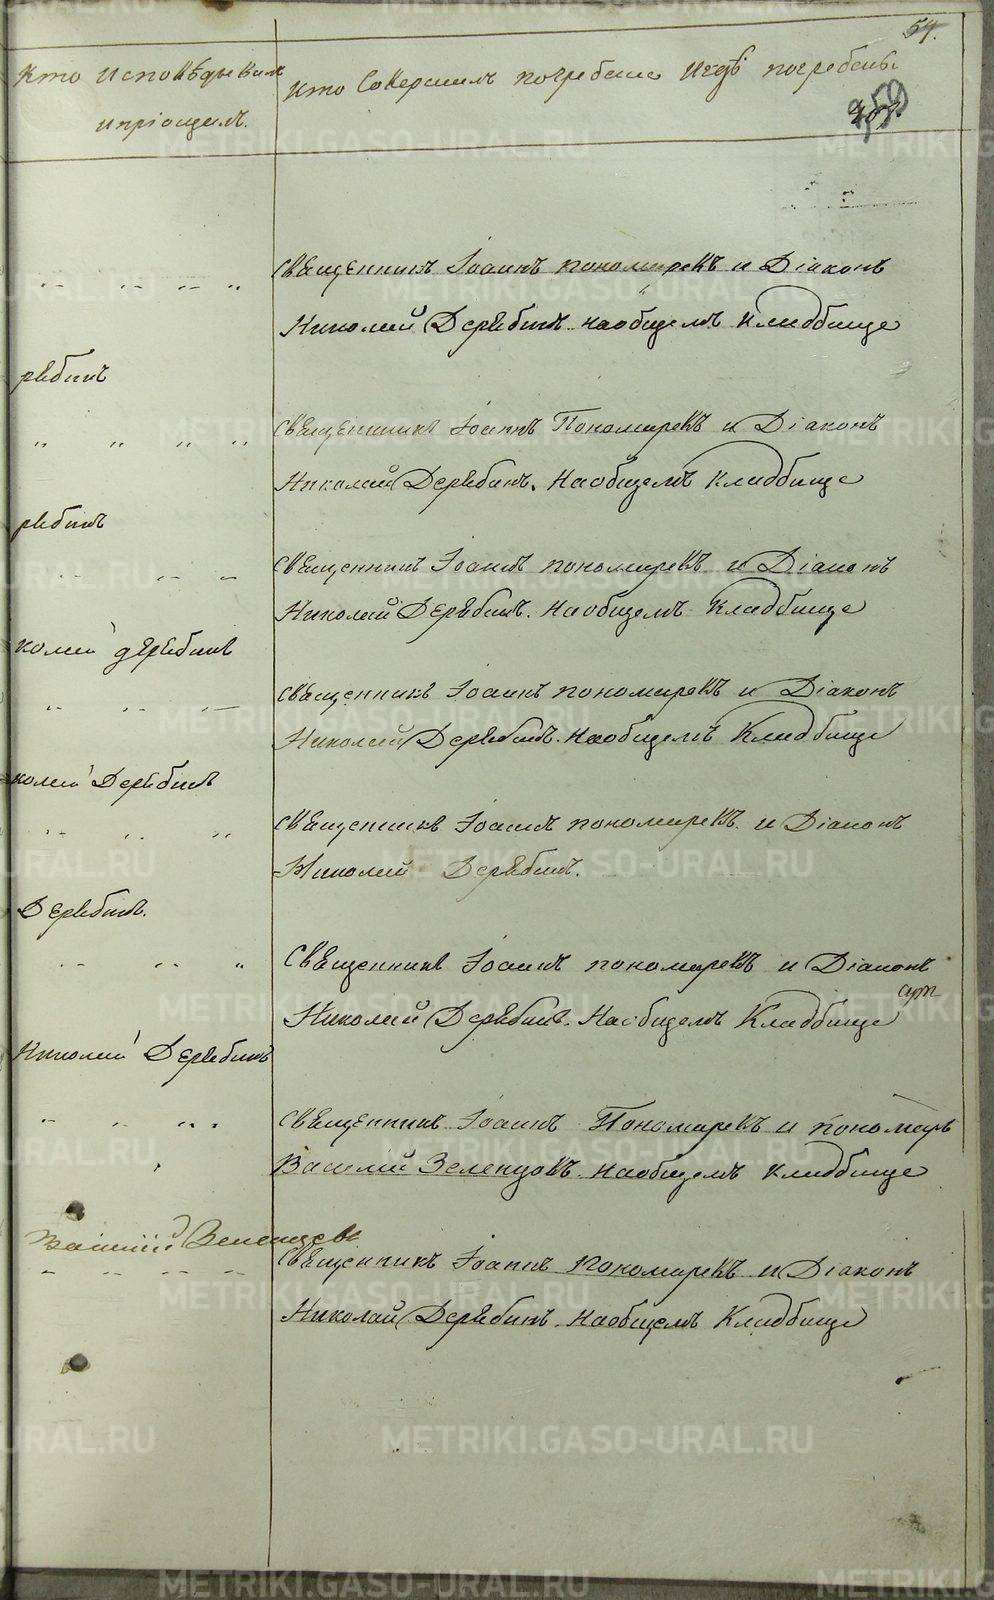 54.
Кто Исповѣдывалъ
и пріощалъ.
Кто Совершилъ погребеніе и гдѣ погребены
359
Священникъ Іоаннъ пономаревъ и Діаконъ
Николай Дерябинъ. на общемъ Кладбище
рябинъ
Священникъ Іоаннъ Пономаревъ и Діаконъ
Николай Дерябинъ. На общемъ Кладбище
рябинъ
Священникъ Іоаннъ пономаревъ и Діаконъ
Николай Дерябинъ. На общемъ Кладбище
колай дерябинъ
Священникъ Іоаннъ пономаревъ и Діаконъ
Николай Дерябинъ. На общемъ Кладбище
колай Дерябинъ
Священникъ Іоаннъ пономаревъ. и Діаконъ
Николай Дерябинъ.
Дерябинъ.
Священникъ Іоаннъ пономаревъ и Діаконъ
Николай Дерябинъ. На общемъ Кладбище
Николай Дерябинъ
Священникъ Іоаннъ Пономаревъ и пономарь
Василій Зеленцовъ. на общемъ кладбище
Василій Зеленцовъ
Священникъ Іоаннъ пономаревъ и Діаконъ
Николай Дерябинъ. на общемъ Кладбище
METRIKI.GASO-URAL.RU